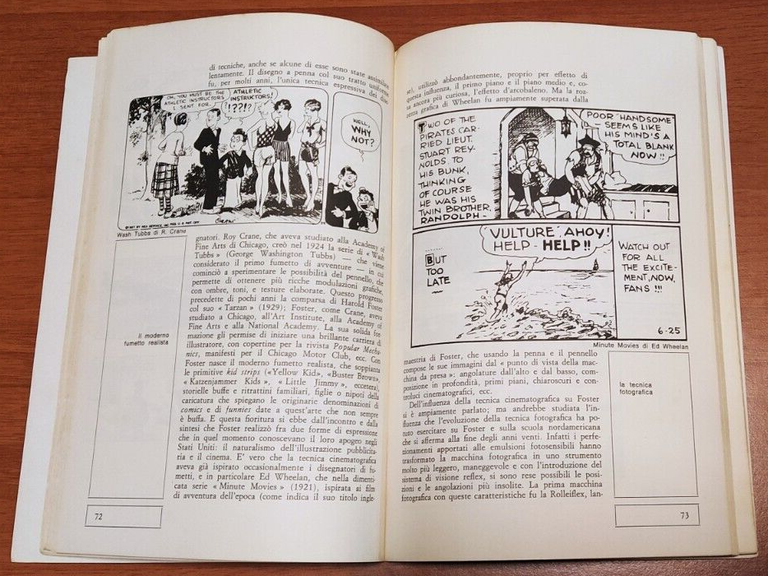 di tecniche, anche se alcune di esse sono state assimilate
lentamente. Il disegno a penna col suo tratto uniforme
fu, per molti anni, l'unica tecnica espressiva dei dise-
OH, YOU MUST BE THE
ATHLETIC INSTRUCTORS
I SENT FOR.
ATHLETIC
INSTRUCTORS!
!??!?
WELL,
WHY
NOT?
CRANE
Wash Tubbs di R. Crane
gnatori. Roy Crane, che aveva studiato alla Academy of
Fine Arts di Chicago, creò nel 1924 la serie di «Wash
Tubbs» (George Washington Tubbs) — che viene
considerato il primo fumetto di avventure — in cui
cominciò a sperimentare le possibilità del pennello, che
permette di ottenere più ricche modulazioni grafiche,
con ombre, toni, e texture elaborate. Questo progresso
precedette di pochi anni la comparsa di Harold Foster
col suo «Tarzan» (1929); Foster, come Crane, aveva
studiato a Chicago, all'Art Institute, alla Academy of
Fine Arts e alla National Academy. La sua solida for-
mazione gli permise di iniziare una brillante carriera di
illustratore, con copertine per la rivista Popular Mecha-
nics, manifesti per il Chicago Motor Club, ecc. Con
Foster nasce il moderno fumetto realista, che soppianta
le primitive kid strips («Yellow Kid», «Buster Brown»,
«Katzenjammer Kids», «Little Jimmy», eccetera),
storielle buffe e ritrattini familiari, figlie o nipoti della
caricatura che spiegano le originarie denominazioni di
comics e di funnies date a quest'arte che non sempre
è buffa. E questa fioritura si ebbe dall'incontro e dalla
sintesi che Foster realizzò fra due forme di espressione
che in quel momento conoscevano il loro apogeo negli
Stati Uniti: il naturalismo dell'illustrazione pubblicita-
ria e il cinema. E' vero che la tecnica cinematografica
aveva già ispirato occasionalmente i disegnatori di fu-
metti, e in particolare Ed Wheelan, che nella dimenti-
cata serie «Minute Movies» (1921), ispirata ai film
di avventura dell'epoca (come indica il suo titolo ingle-
il moderno
fumetto realista
72
se), utilizzò abbondantemente, proprio per effetto di
questa influenza, il primo piano e il piano medio e, co-
sa ancora più curiosa, l'effetto d'arcobaleno. Ma la roz-
zezza grafica di Wheelan fu ampiamente superata dalla
TWO OF THE
PIRATES CAR-
RIED LIEUT.
STUART REY-
NOLDS TO
HIS BUNK,
THINKING
OF COURSE
HE WAS HIS
TWIN BROTHER,
RANDOLPH —
POOR 'HANDSOME'
— SEEMS LIKE
HIS MIND'S A
TOTAL BLANK
NOW!!
BUT
TOO
LATE —
'VULTURE', AHOY!
HELP - HELP!!
WATCH OUT
FOR ALL
THE EXCITE-
MENT, NOW,
FANS!!!
6-25
Minute Movies di Ed Wheelan
maestria di Foster, che usando la penna e il pennello
compose le sue immagini dal «punto di vista della mac-
china da presa»: angolature dall'alto e dal basso, com-
posizione in profondità, primi piani, chiaroscuri e con-
troluci cinematografici, ecc.
Dell'influenza della tecnica cinematografica su Foster
si è ampiamente parlato; ma andrebbe studiata l'in-
fluenza che l'evoluzione della tecnica fotografica ha po-
tuto esercitare su Foster e sulla scuola nordamericana
che si afferma alla fine degli anni venti. Infatti i perfe-
zionamenti apportati alle emulsioni fotosensibili hanno
trasformato la macchina fotografica in uno strumento
molto più leggero, maneggevole e con l'introduzione del
sistema di visione reflex, si sono rese possibili le posi-
zioni e le angolazioni più insolite. La prima macchina
fotografica con queste caratteristiche fu la Rolleiflex, lan-
la tecnica
fotografica
73